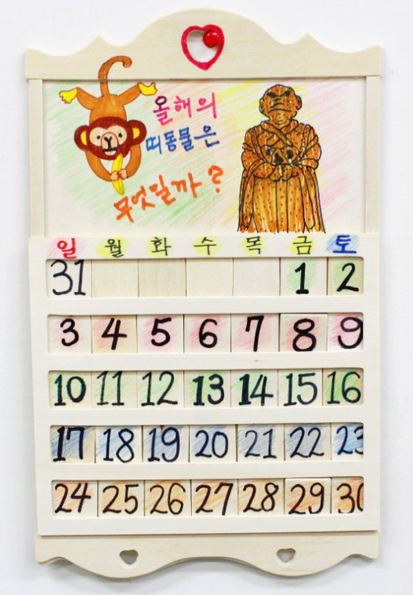 올해의
띠동물은
무엇일까?
일 월 화 수 목 금 토
31 1 2
3 4 5 6 7 8 9
10 11 12 13 14 15 16
17 18 19 20 21 22 23
24 25 26 27 28 29 30